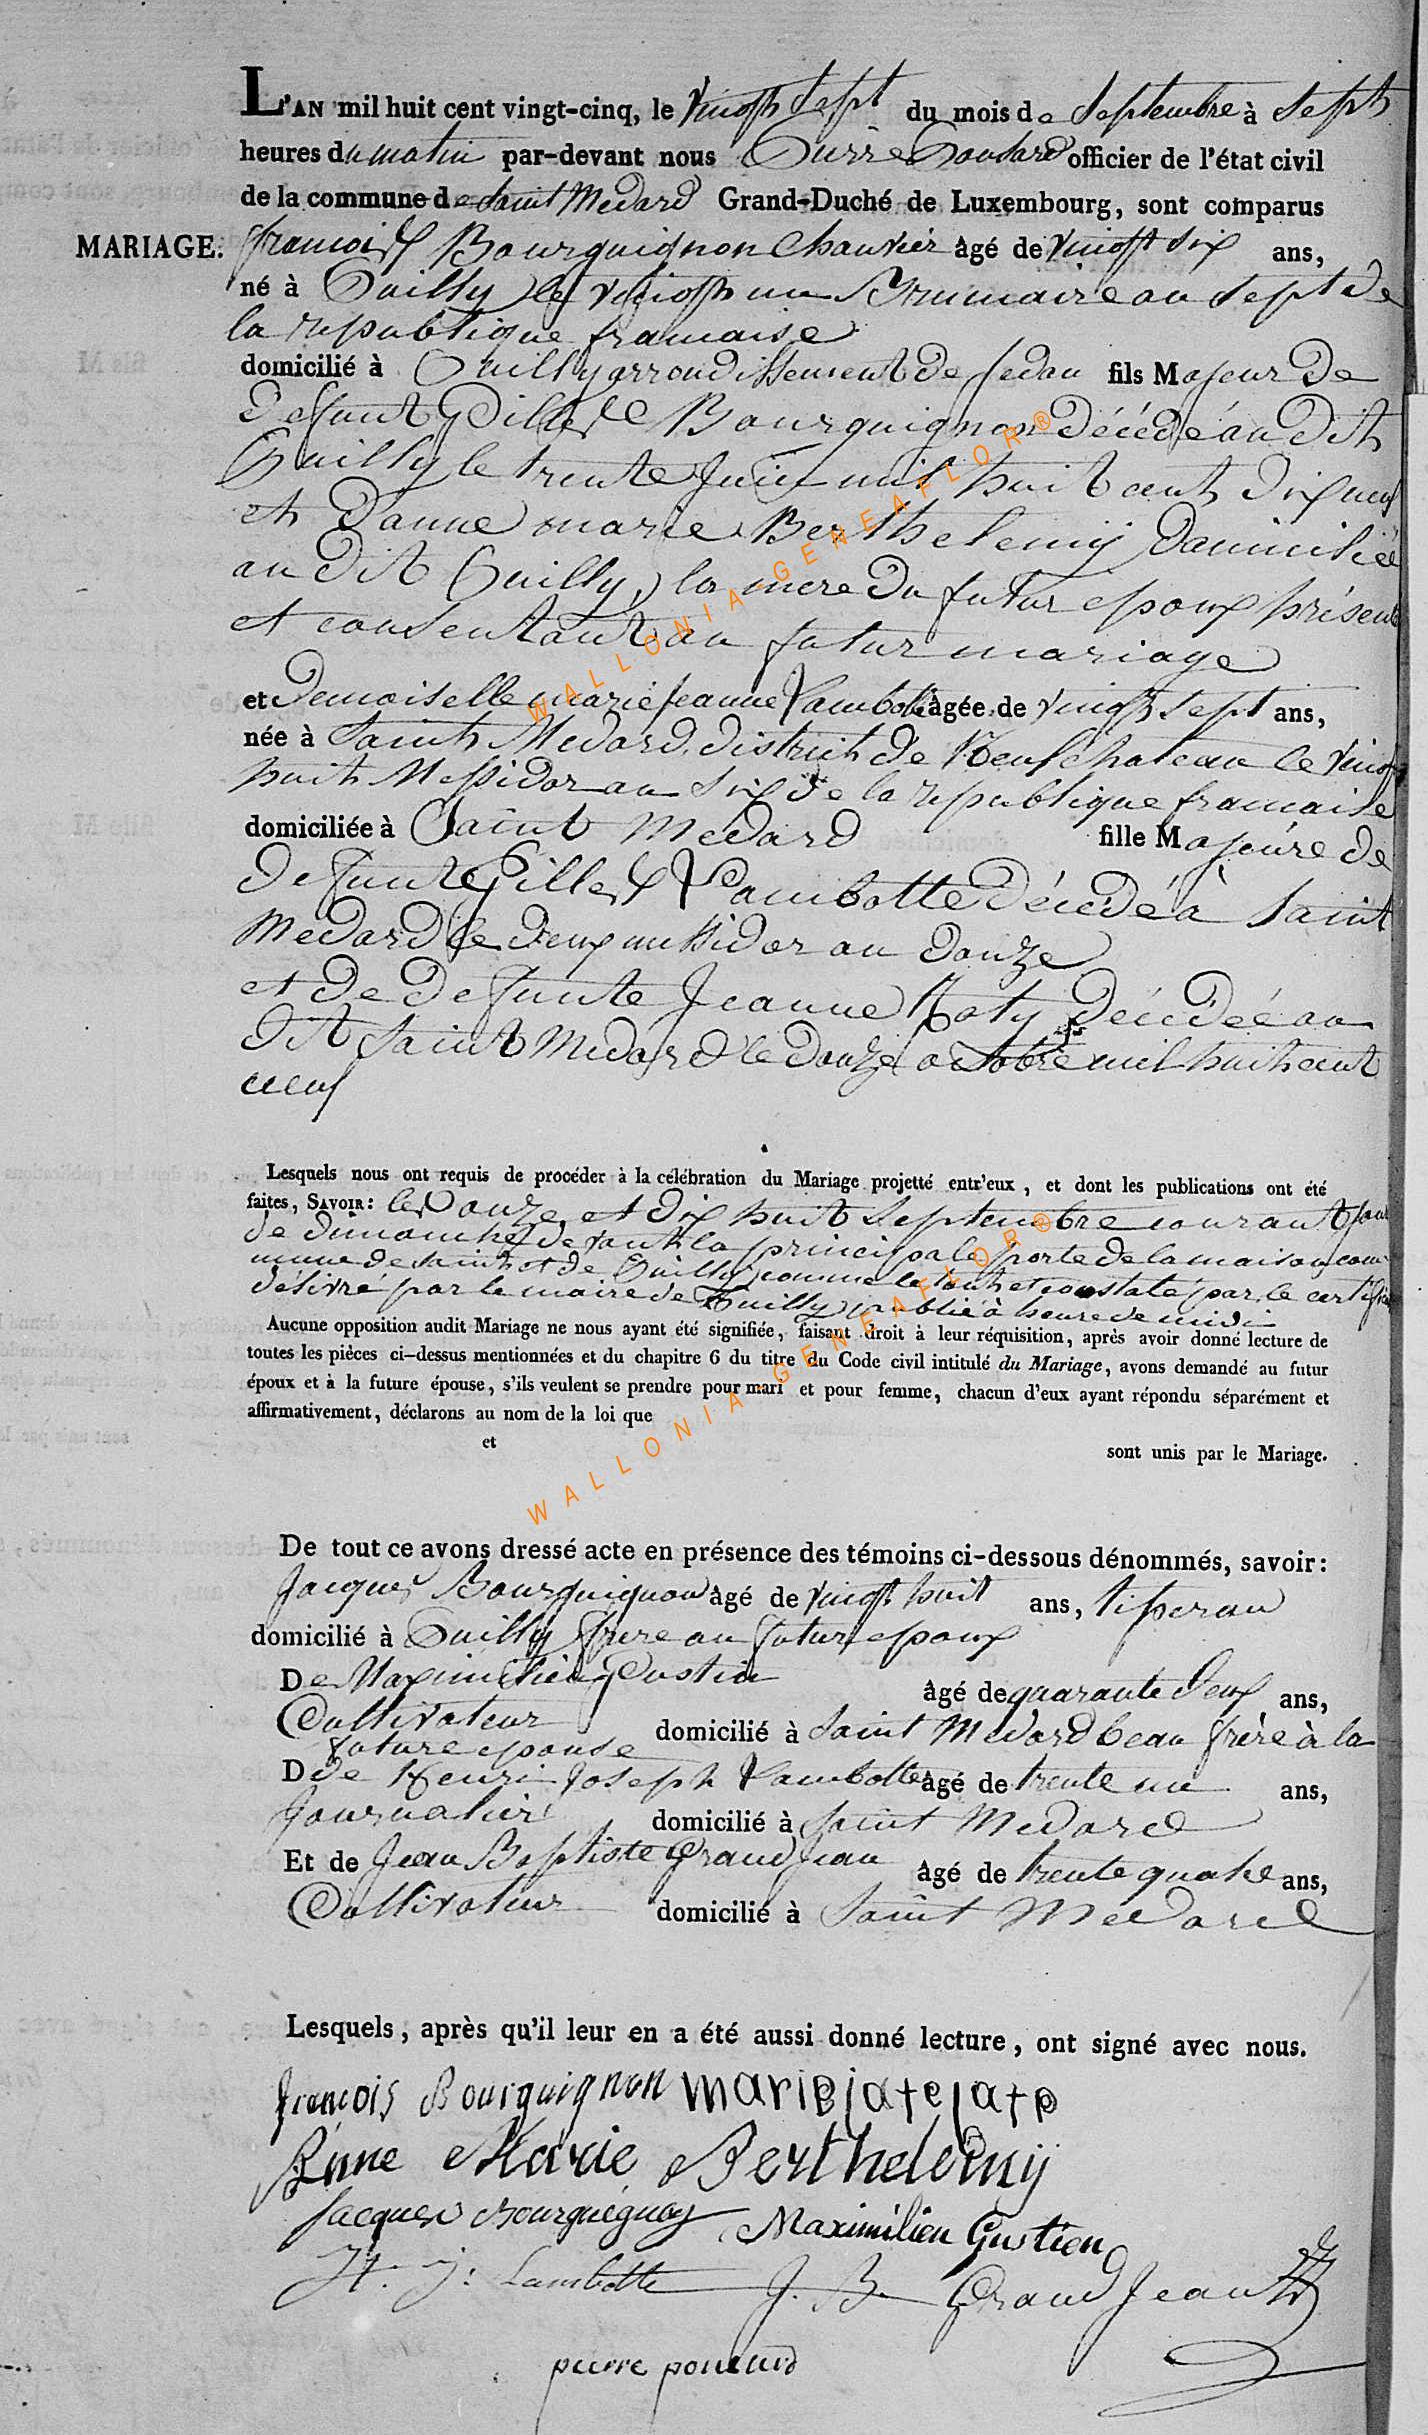 L'AN mil huit cent vingt-cinq, le vingt sept du mois de Septembre à Sept
heures du matin par-devant nous officier de l'état civil
de la commune de Saint Medard Grand-Duché de Luxembourg, sont comparus
MARIAGE. francois Bourguignon âgé de vingt six ans,
né à le vingt un Brumaire an sept de
la republique francaise
domicilié à arrondissement de Sedan fils Majeur de
defunt Gille Bourguignon décédé au dit
le trente Juin mil huit cent dix neuf
et d'anne marie Berthelemÿ Domiciliée
au dit la mere du futur epoux présente
et consentant au futur mariage
et Demoiselle marie Jeanne Lambotte âgée de vingt sept ans,
née à Saint Medard district de Neufchateau le vingt
huit Messidor an Six de la republique francaise
domiciliée à Saint Medard fille Majeure de
defunt Gille Lambotte décédé à Saint
Medard le deux messidor an Douze
et de defunte Jeanne décédée au
dit Saint Medard le Douze octobre mil huit cent
neuf
Lesquels nous ont requis de procéder à la célébration du Mariage projetté entr'eux, et dont les publications ont été
faites, SAVOIR: le onze et dix huit Septembre courant jour
de dimanche devant la principale porte de la maison com
mune de Saint et de comme le tout et constaté par le certificat
délivré par le maire de publié à heure de midi
Aucune opposition audit Mariage ne nous ayant été signifiée, faisant droit à leur réquisition, après avoir donné lecture de
toutes les pièces ci-dessus mentionnées et du chapitre 6 du titre du Code civil intitulé du Mariage, avons demandé au futur
époux et à la future épouse, s'ils veulent se prendre pour mari et pour femme, chacun d'eux ayant répondu séparément et
affirmativement, déclarons au nom de la loi que
et
sont unis par le Mariage.
De tout ce avons dressé acte en présence des témoins ci-dessous dénommés, savoir:
Jacques Bourguignon âgé de vingt huit ans, tisseran
domicilié à frere au futur epoux
De Maximilien Gustin âgé de quarante deux ans,
Cultivateur domicilié à Saint Medard beau frère à la
future epouse
D de Henri Joseph Lambotte âgé de trente un ans,
Journalier domicilié à Saint Medard
Et de Jean Baptiste Grand Jean âgé de trente quatre ans,
Cultivateur domicilié à Saint Medard
Lesquels, après qu'il leur en a été aussi donné lecture, ont signé avec nous.
francois Bourguignon marie
Anne Marie Berthelemÿ
Jacques Bourguignon Maximilien Gustien
H. J: Lambotte J. B. Grand Jean
pierre
WALLONIA-GENEAFLOR®
WALLONIA-GENEAFLOR®